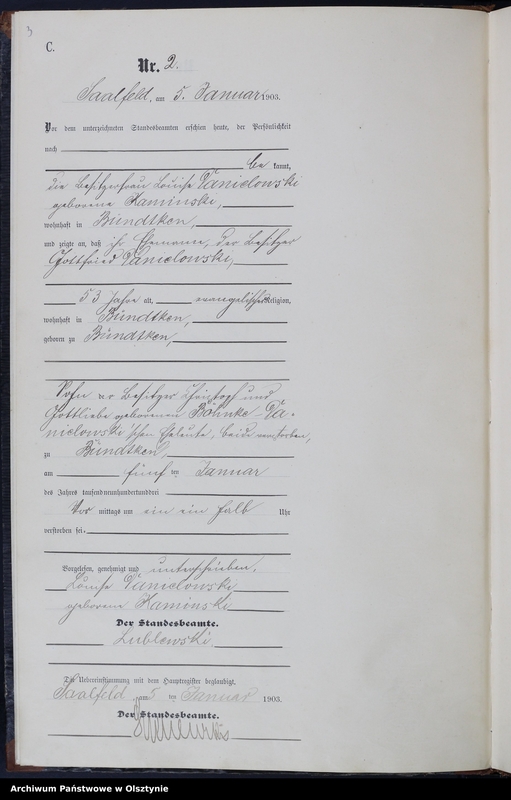 3
C.
Nr. 2.
Saalfeld, am 5. Januar 1903.
Vor dem unterzeichneten Standesbeamten erschien heute, der Persönlichkeit
nach
be kannt,
die Besitzerfrau Louise Danielowski
geborene Kaminski,
wohnhaft in Bündtken,
und zeigte an, daß ihr Ehemann, der Besitzer
Gottfried Danielowski,
53 Jahre alt, evangelischer Religion,
wohnhaft in Bündtken,
geboren zu Bündtken,
Sohn der Besitzer Christoph und
Gottliebe geborenen Böhnke-Da-
nielowski'schen Eheleute, beide verstorben,
zu Bündtken,
am fünf ten Januar
des Jahres tausend neunhundert und drei
Vor mittags um ein ein halb Uhr
verstorben sei.
Vorgelesen, genehmigt und unterschrieben.
Louise Danielowski
geborene Kaminski
Der Standesbeamte.
Lublewski
Die Uebereinstimmung mit dem Hauptregister beglaubigt.
Saalfeld, am 5 ten Januar 1903.
Der Standesbeamte.
Archiwum Państwowe w Olsztynie